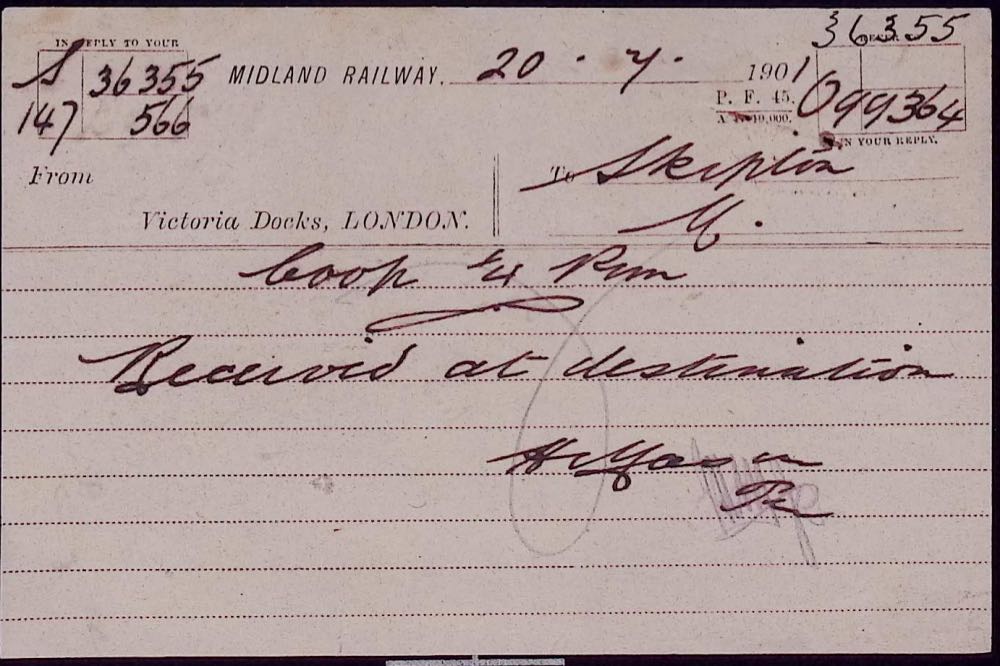 36355
IN REPLY TO YOUR
S 36355
147 566
MIDLAND RAILWAY. 20 . 7 . 1901
P. F. 45.
099364
IN YOUR REPLY.
From
To Skipton
M.
Victoria Docks, LONDON.
Coop
Received at destination